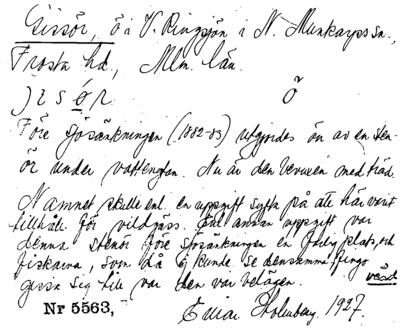 Gissör, ö i V. Ringsjön i N. Munkarps sn.,
Frosta hd, Mlm. län.
jɪsør ö
Före sjösänkningen (1882-83) utgjordes ön av en sten-
ör under vattenytan. Nu är den bevuxen med träd.
Namnet skulle enl. en uppgift syfta på att här varit
tillhåll för vildgäss. Enl. annan uppgift var
denna stenör före sjösänkningen en farlig plats, och
fiskarna, som då ej kunde se densamma fingo
gissa sig till var den var belägen. vänd
Nr 5563, Einar Holmberg. 1927.